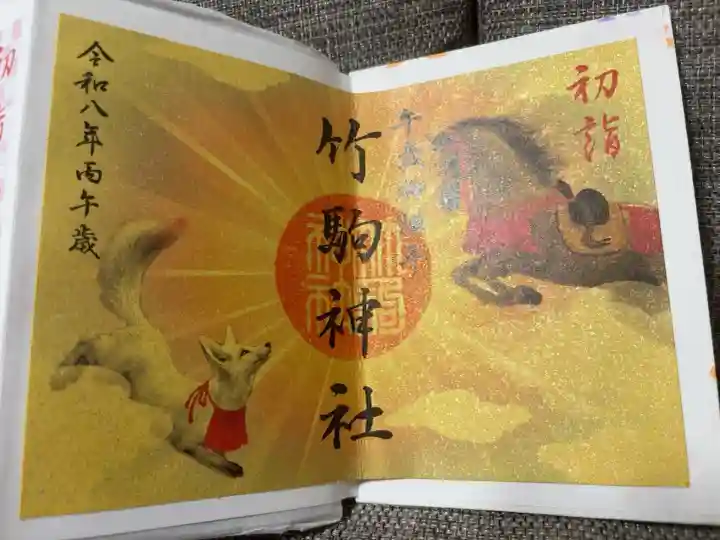 初詣
竹駒神社
令和八年丙午歳